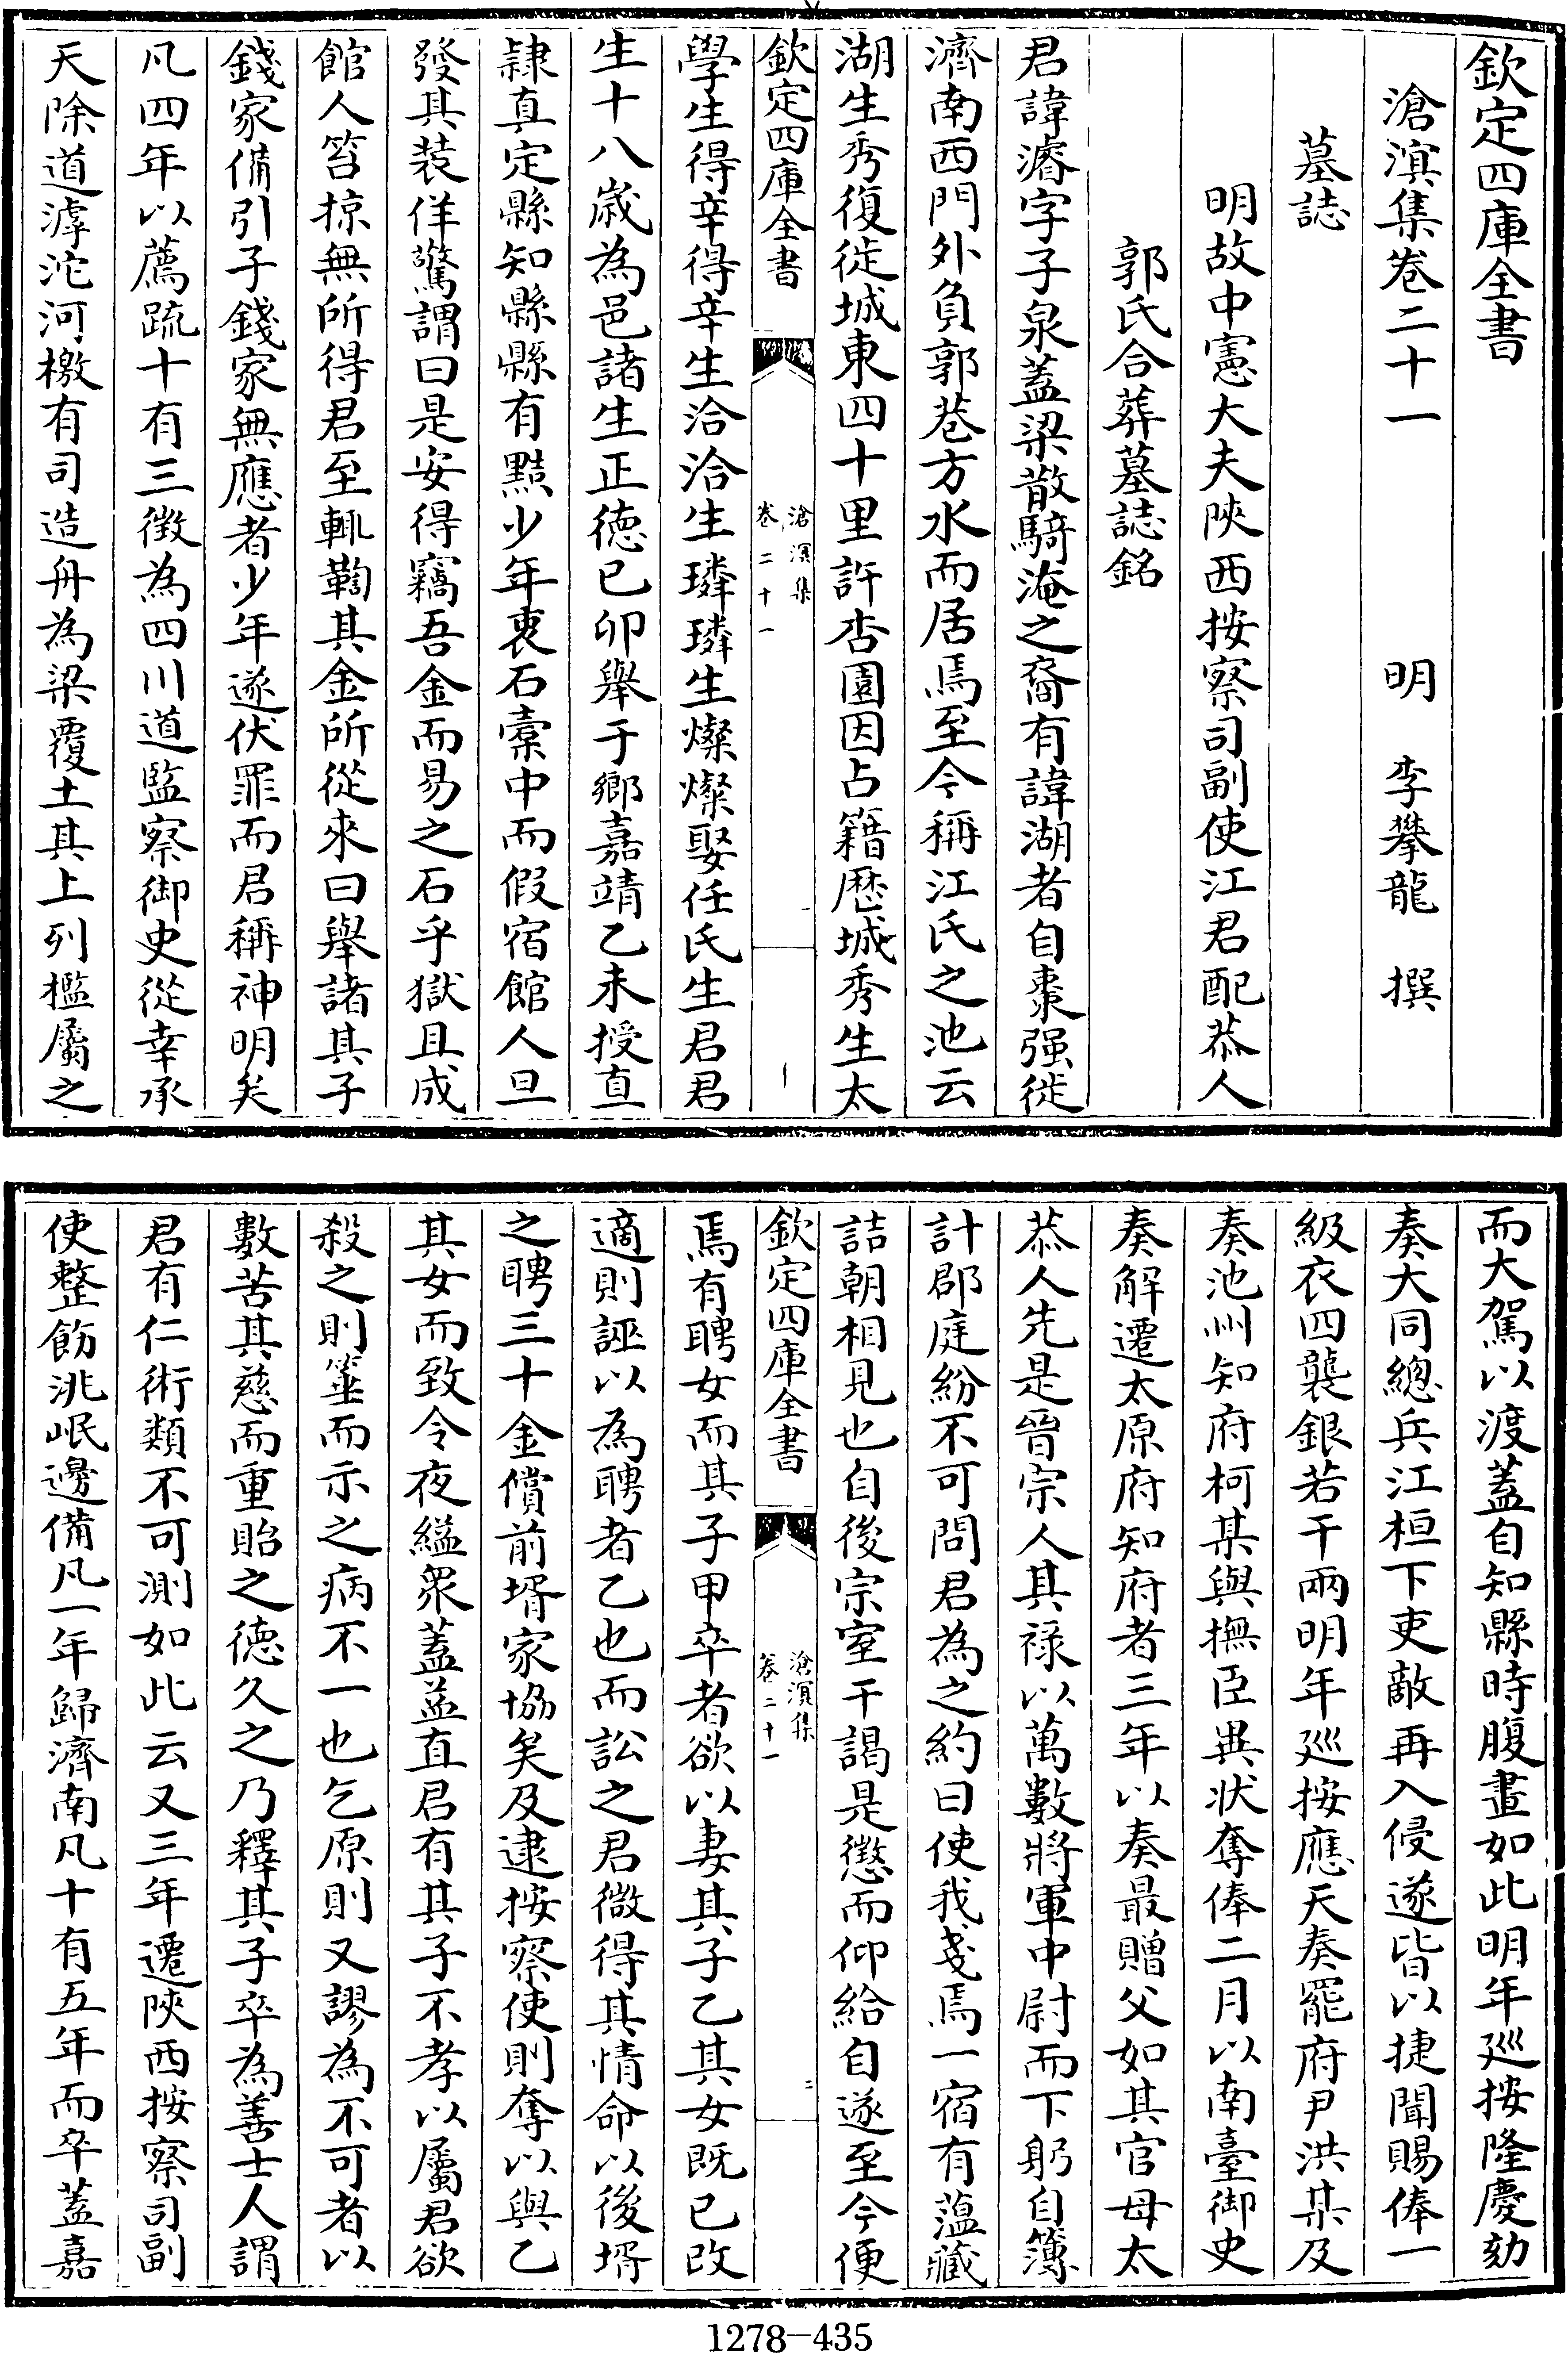 欽定四庫全書
滄溟集卷二十一　　　　明　李攀龍　撰
墓誌
明故中憲大夫陜西按察司副使江君配恭人
郭氏合葬墓誌銘
君諱濬字子泉蓋梁散騎淹之裔有諱湖者自棗强徙
濟南西門外負郭巷方水而居焉至今稱江氏之池云
湖生秀復徙城東四十里許杏園因占籍歴城秀生太
欽定四庫全書
滄溟集
卷二十一
一
學生得辛得辛生洽洽生璘璘生燦燦娶任氏生君君
生十八歲為邑諸生正德已卯舉于鄉嘉靖乙未授直
隷真定縣知縣縣有黠少年裹石橐中而假宿館人旦
發其装佯驚謂曰是安得竊吾金而易之石乎獄且成
館人笞掠無所得君至輒鞫其金所從來曰舉諸其子
錢家備引子錢家無應者少年遂伏罪而君稱神明矣
凡四年以薦䟽十有三徴為四川道監察御史從幸承
天除道滹沱河檄有司造舟為梁覆土其上列檻屬之
而大駕以渡蓋自知縣時腹畫如此明年廵按隆慶劾
奏大同總兵江桓下吏敵再入侵遂皆以捷聞賜俸一
級衣四襲銀若干兩明年廵按應天奏罷府尹洪某及
奏池州知府柯某與撫臣異狀奪俸二月以南臺御史
奏解遷太原府知府者三年以奏最贈父如其官母太
恭人先是晉宗人其禄以萬數將軍中尉而下躬自簿
計郡庭紛不可問君為之約曰使我戔焉一宿有藴藏
詰朝相見也自後宗室干謁是懲而仰給自遂至今便
欽定四庫全書
滄溟集
卷二十一
二
焉有聘女而其子甲卒者欲以妻其子乙其女既已改
適則誣以為聘者乙也而訟之君微得其情命以後壻
之聘三十金償前壻家協矣及逮按察使則奪以與乙
其女而致令夜縊衆蓋益直君有其子不孝以屬君欲
殺之則箠而示之病不一也乞原則又謬為不可者以
數苦其慈而重貽之徳久之乃釋其子卒為善士人謂
君有仁術類不可測如此云又三年遷陜西按察司副
使整飭洮岷邊備凡一年歸濟南凡十有五年而卒蓋嘉
1278—435